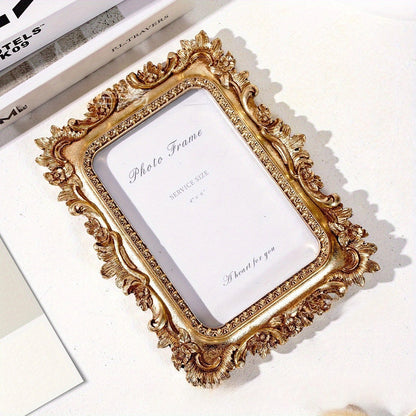 OTELS
K09
P.L.TRAVERS
ME
Photo Frame
SERVICE SIZE
4" x 6"
A heart for you